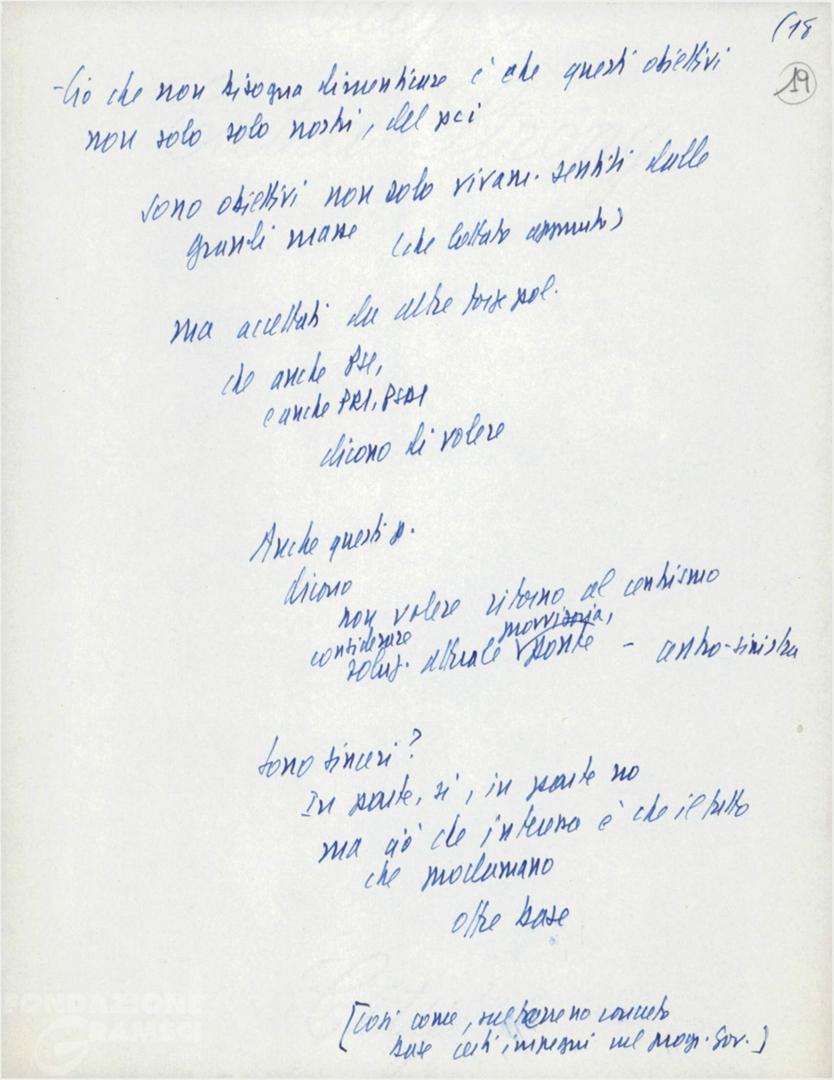 (18
19
- Ciò che non bisogna dimenticare è che questi obiettivi
non solo solo nostri, del pci
sono obiettivi non solo vivam. sentiti dalle
grandi masse (che lottato)
ma accettati da altre forze pol.
che anche PSI,
e anche PRI, PSDI
dicono di volere
Anche questi p.
dicono
non volere ritorno al centrismo
considerare provvisoria,
soluz. attuale ponte - centro-sinistra
Sono sinceri?
In parte, sì, in parte no
ma ciò che interessa è che il fatto
che proclamano
offre base
[Così come, sul terreno concreto
base certi impegni nel progr. gov.]
FONDAZIONE
GRAMSCI